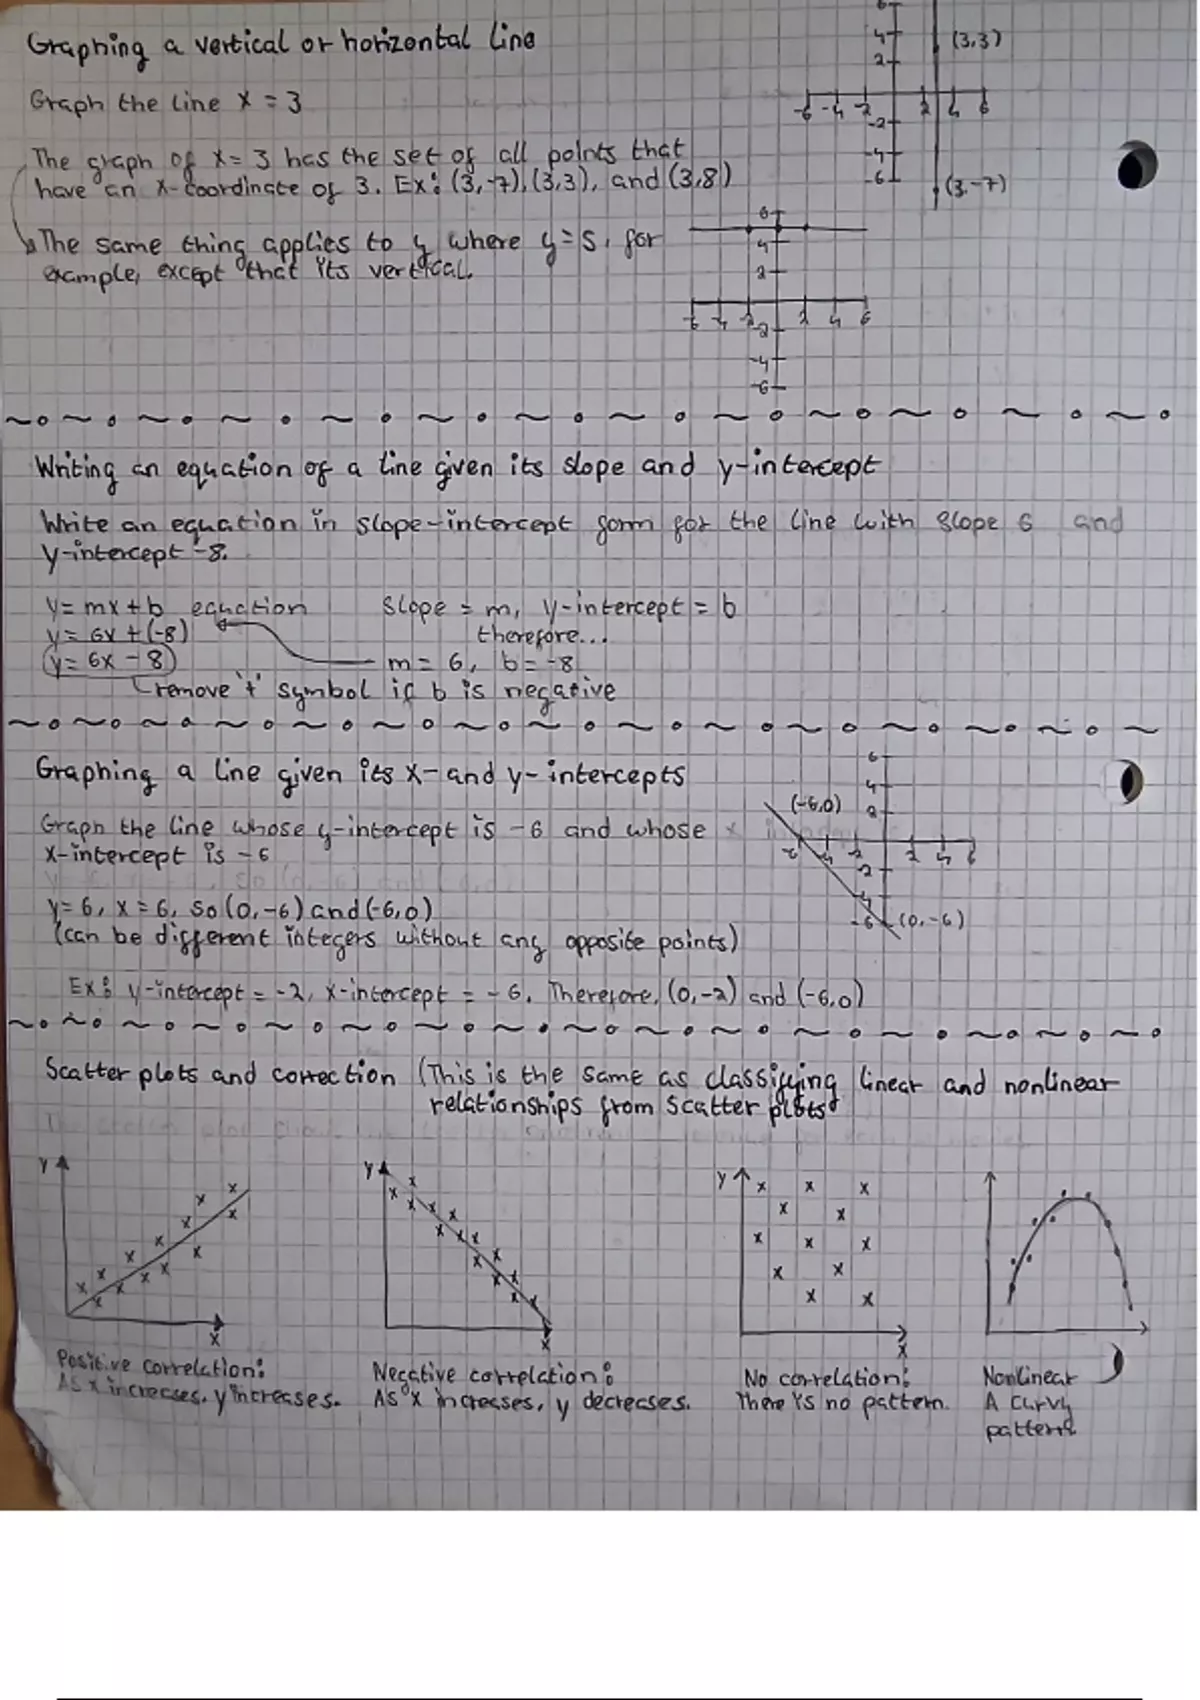 Graphing a vertical or horizontal line
Graph the line x = 3
The graph of x = 3 has the set of all points that
have an x-coordinate of 3. Ex: (3,-7), (3,3), and (3,8)
The same thing applies to y where y=5, for
example, except that its vertical.
6
4
2
-6 -4 -2 2 4 6
-2
-4
-6
(3,3)
(3,-7)
6
4
2
-6 -4 -2 2 4 6
-2
-4
-6
Writing an equation of a line given its slope and y-intercept
Write an equation in slope-intercept form for the line with slope 6 and
y-intercept -8.
y = mx + b equation slope = m, y-intercept = b
y = 6x + (-8) therefore...
y = 6x - 8 m = 6, b = -8
remove '+' symbol if b is negative
Graphing a line given its x- and y-intercepts
Graph the line whose y-intercept is -6 and whose
x-intercept is -6
y = 6, x = 6, so (0,-6) and (-6,0)
(can be different integers without any opposite points)
Ex: y-intercept = -2, x-intercept = -6. Therefore, (0,-2) and (-6,0)
6
4
2
(-6,0)
-6 -4 -2 2 4 6
-2
-4
-6 (0,-6)
Scatter plots and correction (This is the same as classifying linear and nonlinear
relationships from scatter plots
y x
y x
y x
Positive correlation:
As x increases, y increases.
Negative correlation:
As x increases, y decreases.
No correlation:
There is no pattern.
Nonlinear
A curvy
pattern